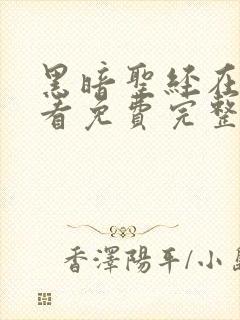 黑暗聖经在
看免費完整
香澤陽平/小島